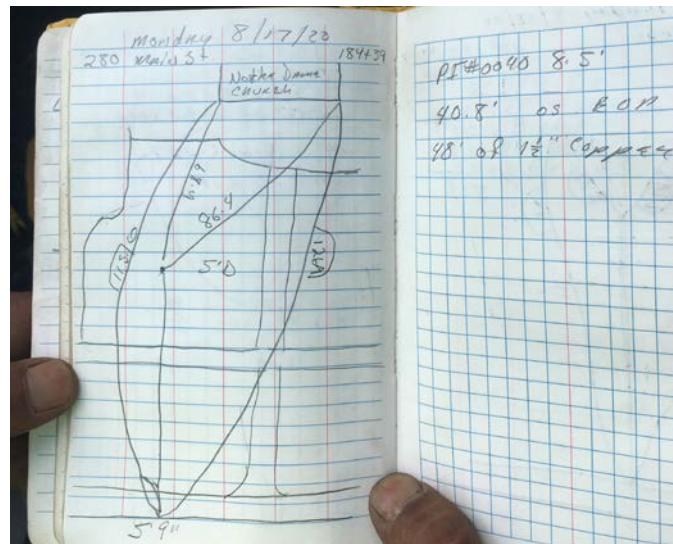 monday 8/17/20
280 main St
184+39
Notre Dame
Church
86.4
5'D
5'9"
PI#0040 8.5'
40.8' os EOP
48' of 1½" Copper